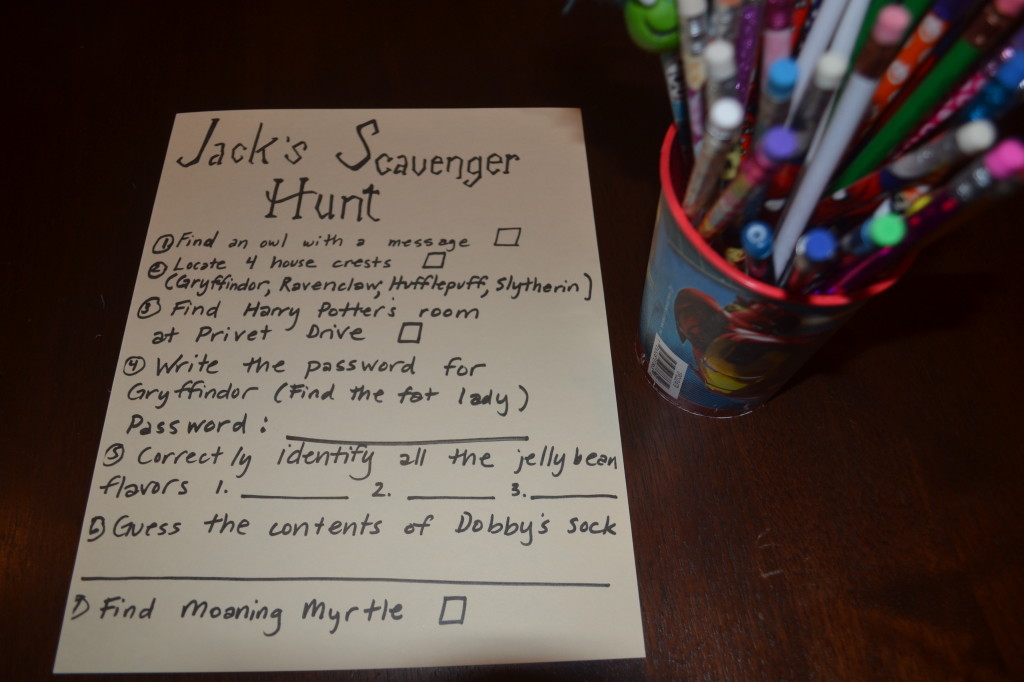 Jack's Scavenger
Hunt
① Find an owl with a message
② Locate 4 house crests
(Gryffindor, Ravenclaw, Hufflepuff, Slytherin)
③ Find Harry Potter's room
at Privet Drive
④ Write the password for
Gryffindor (Find the fat lady)
Password:
⑤ Correctly identify all the jelly bean
flavors 1. 2. 3.
⑥ Guess the contents of Dobby's sock
⑦ Find Moaning Myrtle